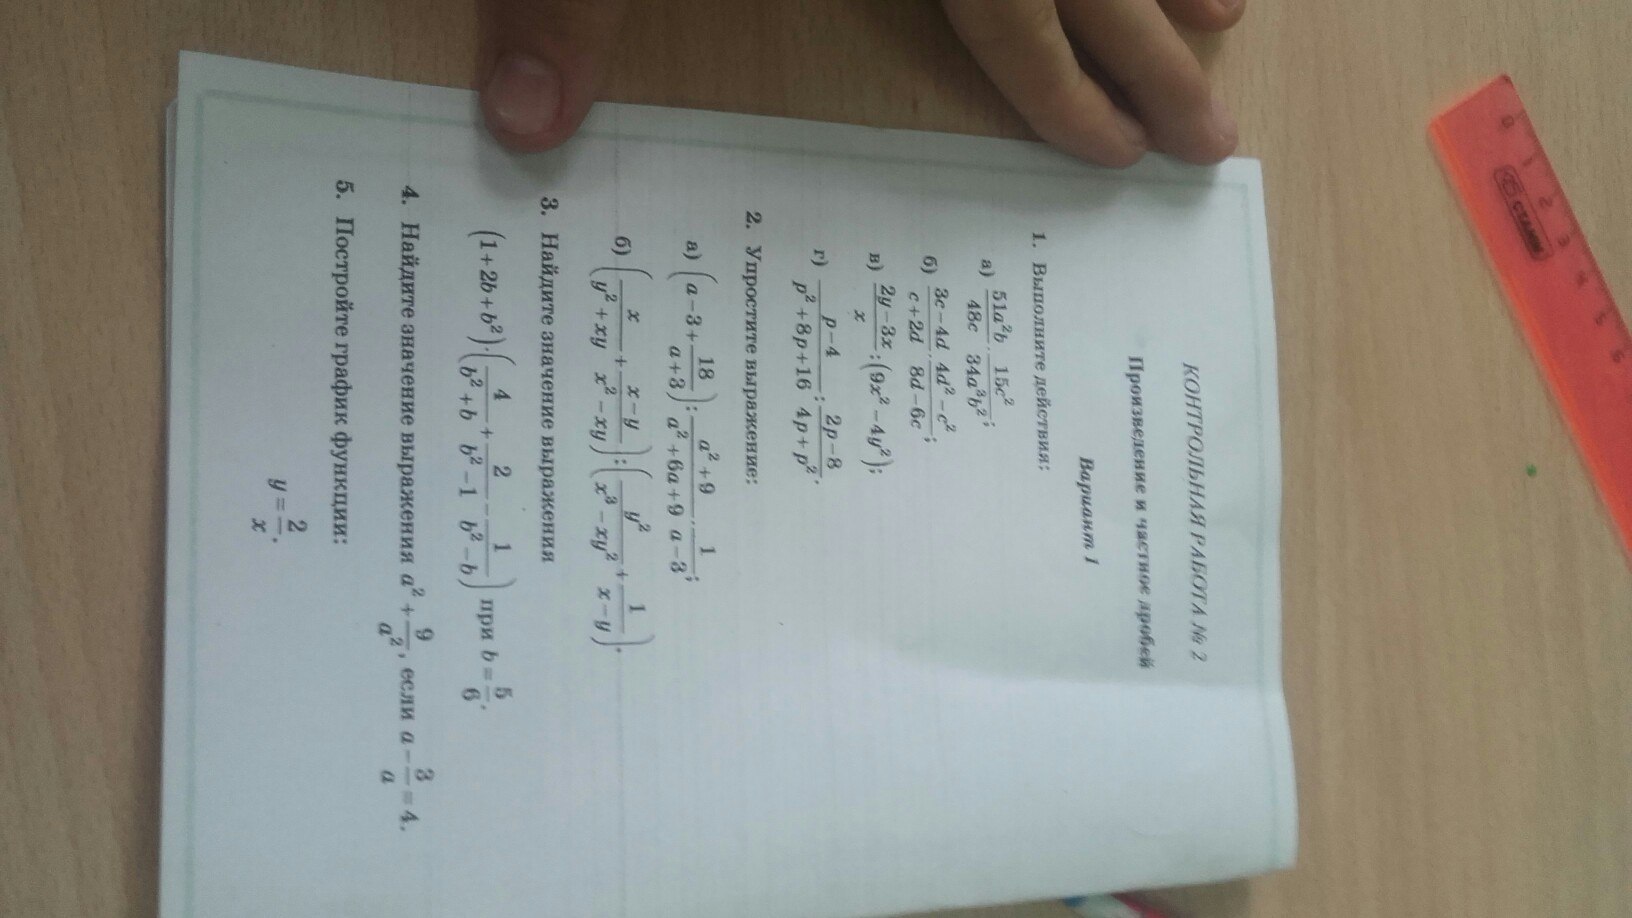 КОНТРОЛЬНАЯ РАБОТА № 2
Произведение и частное дробей
Вариант 1
1. Выполните действия:
а) 51a²b/48c · 15c²/34a³b²;
б) (3c−4d)/(c+2d) · (4d²−c²)/(8d−6c);
в) (2y−3x)/x : (9x²−4y²);
г) (p−4)/(p²+8p+16) : (2p−8)/(4p+p²).
2. Упростите выражение:
а) (a−3+18/(a+3)) : (a²+9)/(a²+6a+9) · 1/(a−3);
б) (x/(y²+xy) + (x−y)/(x²−xy)) : (y²/(x³−xy²) + 1/(x−y)).
3. Найдите значение выражения
(1+2b+b²)·(4/(b²+b) + 2/(b²−1) − 1/(b²−b)) при b = 5/6.
4. Найдите значение выражения a² + 9/a², если a − 3/a = 4.
5. Постройте график функции:
y = 2/x.
0 1 2 3 4 5 6
СТАММ